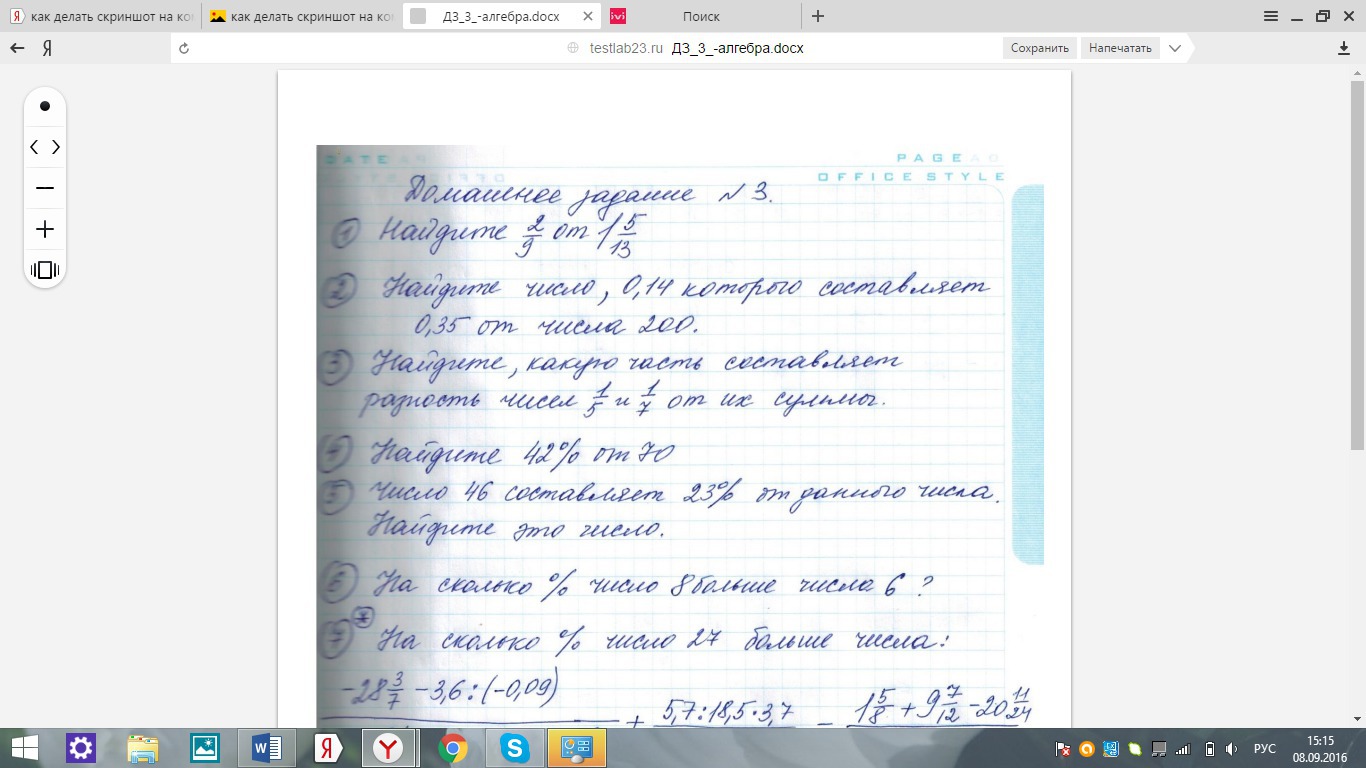 как делать скриншот на ко
как делать скриншот на ко
ДЗ_3_-алгебра.docx
ivi
Поиск
Я
testlab23.ru ДЗ_3_-алгебра.docx
Сохранить
Напечатать
DATE
PAGE
OFFICE STYLE
Домашнее задание № 3.
1 Найдите 2/9 от 1 5/13
2 Найдите число, 0,14 которого составляет
0,35 от числа 200.
3 Найдите, какую часть составляет
разность чисел 1/5 и 1/7 от их суммы.
Найдите 42% от 70
5 Число 46 составляет 23% от данного числа.
Найдите это число.
6 На сколько % число 8 больше числа 6 ?
7* На сколько % число 27 больше числа:
-28 3/7 - 3,6 : (-0,09) + 5,7 : 18,5 · 3,7 - 1 5/8 + 9 7/12 - 20 11/24
РУС
15:15
08.09.2016